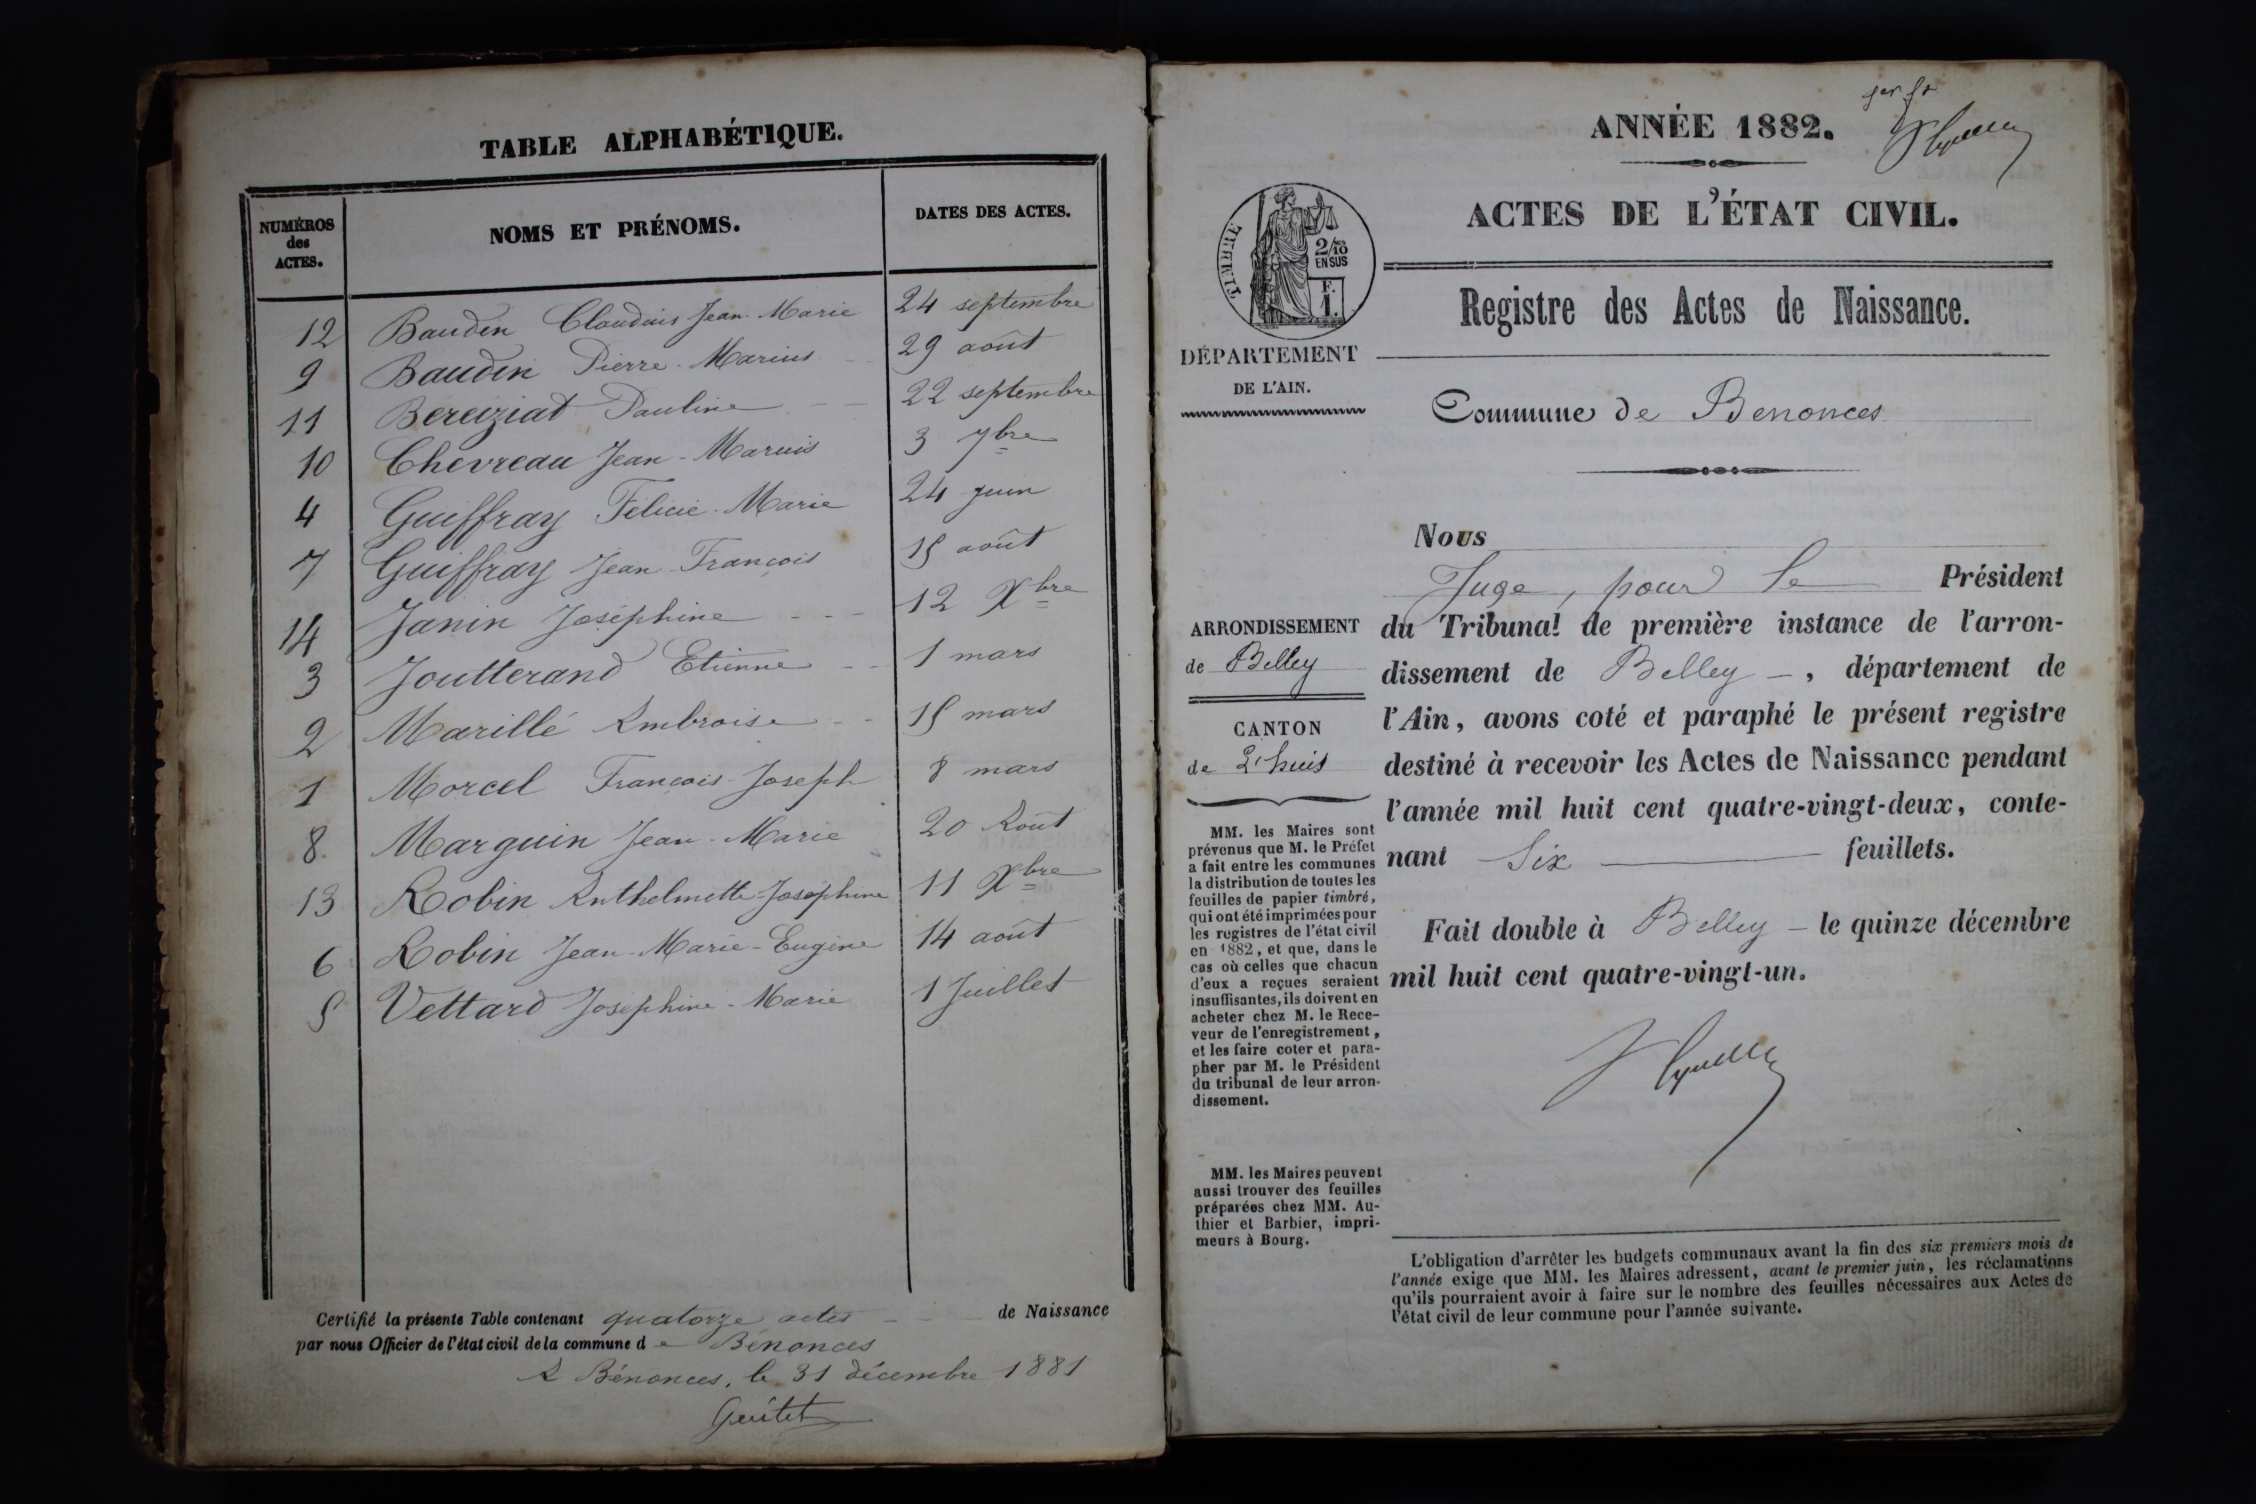 TABLE ALPHABÉTIQUE.
NUMÉROS des ACTES. NOMS ET PRÉNOMS. DATES DES ACTES.
12 Baudin Claudius Jean-Marie 24 septembre
9 Baudin Pierre-Marius 29 août
11 Bereiziat Pauline 22 septembre
10 Chevreau Jean-Marius 3 7bre
4 Guiffray Félicie-Marie 24 juin
7 Guiffray Jean-François 15 août
14 Janin Joséphine 12 Xbre
3 Joutterand Etienne 1 mars
2 Marillé Ambroise 15 mars
1 Morcel François-Joseph 8 mars
8 Marguin Jean-Marie 20 Août
13 Robin Anthelmette-Joséphine 11 Xbre
6 Robin Jean-Marie-Eugène 14 août
5 Vettard Joséphine-Marie 1 Juillet
Certifié la présente Table contenant quatorze actes de Naissance
par nous Officier de l'état civil de la commune de Bénonces
A Bénonces, le 31 décembre 1881
ANNÉE 1882.
ACTES DE L'ÉTAT CIVIL.
TIMBRE
2/10 EN SUS
F. 1.
Registre des Actes de Naissance.
DÉPARTEMENT
DE L'AIN.
Commune de Benonces
Nous
Juge, pour le Président
du Tribunal de première instance de l'arron-
dissement de Belley –, département de
l'Ain, avons coté et paraphé le présent registre
destiné à recevoir les Actes de Naissance pendant
l'année mil huit cent quatre-vingt-deux, conte-
nant Six feuillets.
Fait double à Belley – le quinze décembre
mil huit cent quatre-vingt-un.
ARRONDISSEMENT
de Belley
CANTON
de L'huis
MM. les Maires sont
prévenus que M. le Préfet
a fait entre les communes
la distribution de toutes les
feuilles de papier timbré,
qui ont été imprimées pour
les registres de l'état civil
en 1882, et que, dans le
cas où celles que chacun
d'eux a reçues seraient
insuffisantes, ils doivent en
acheter chez M. le Rece-
veur de l'enregistrement,
et les faire coter et para-
pher par M. le Président
du tribunal de leur arron-
dissement.
MM. les Maires peuvent
aussi trouver des feuilles
préparées chez MM. Au-
thier et Barbier, impri-
meurs à Bourg.
L'obligation d'arrêter les budgets communaux avant la fin des six premiers mois de
l'année exige que MM. les Maires adressent, avant le premier juin, les réclamations
qu'ils pourraient avoir à faire sur le nombre des feuilles nécessaires aux Actes de
l'état civil de leur commune pour l'année suivante.